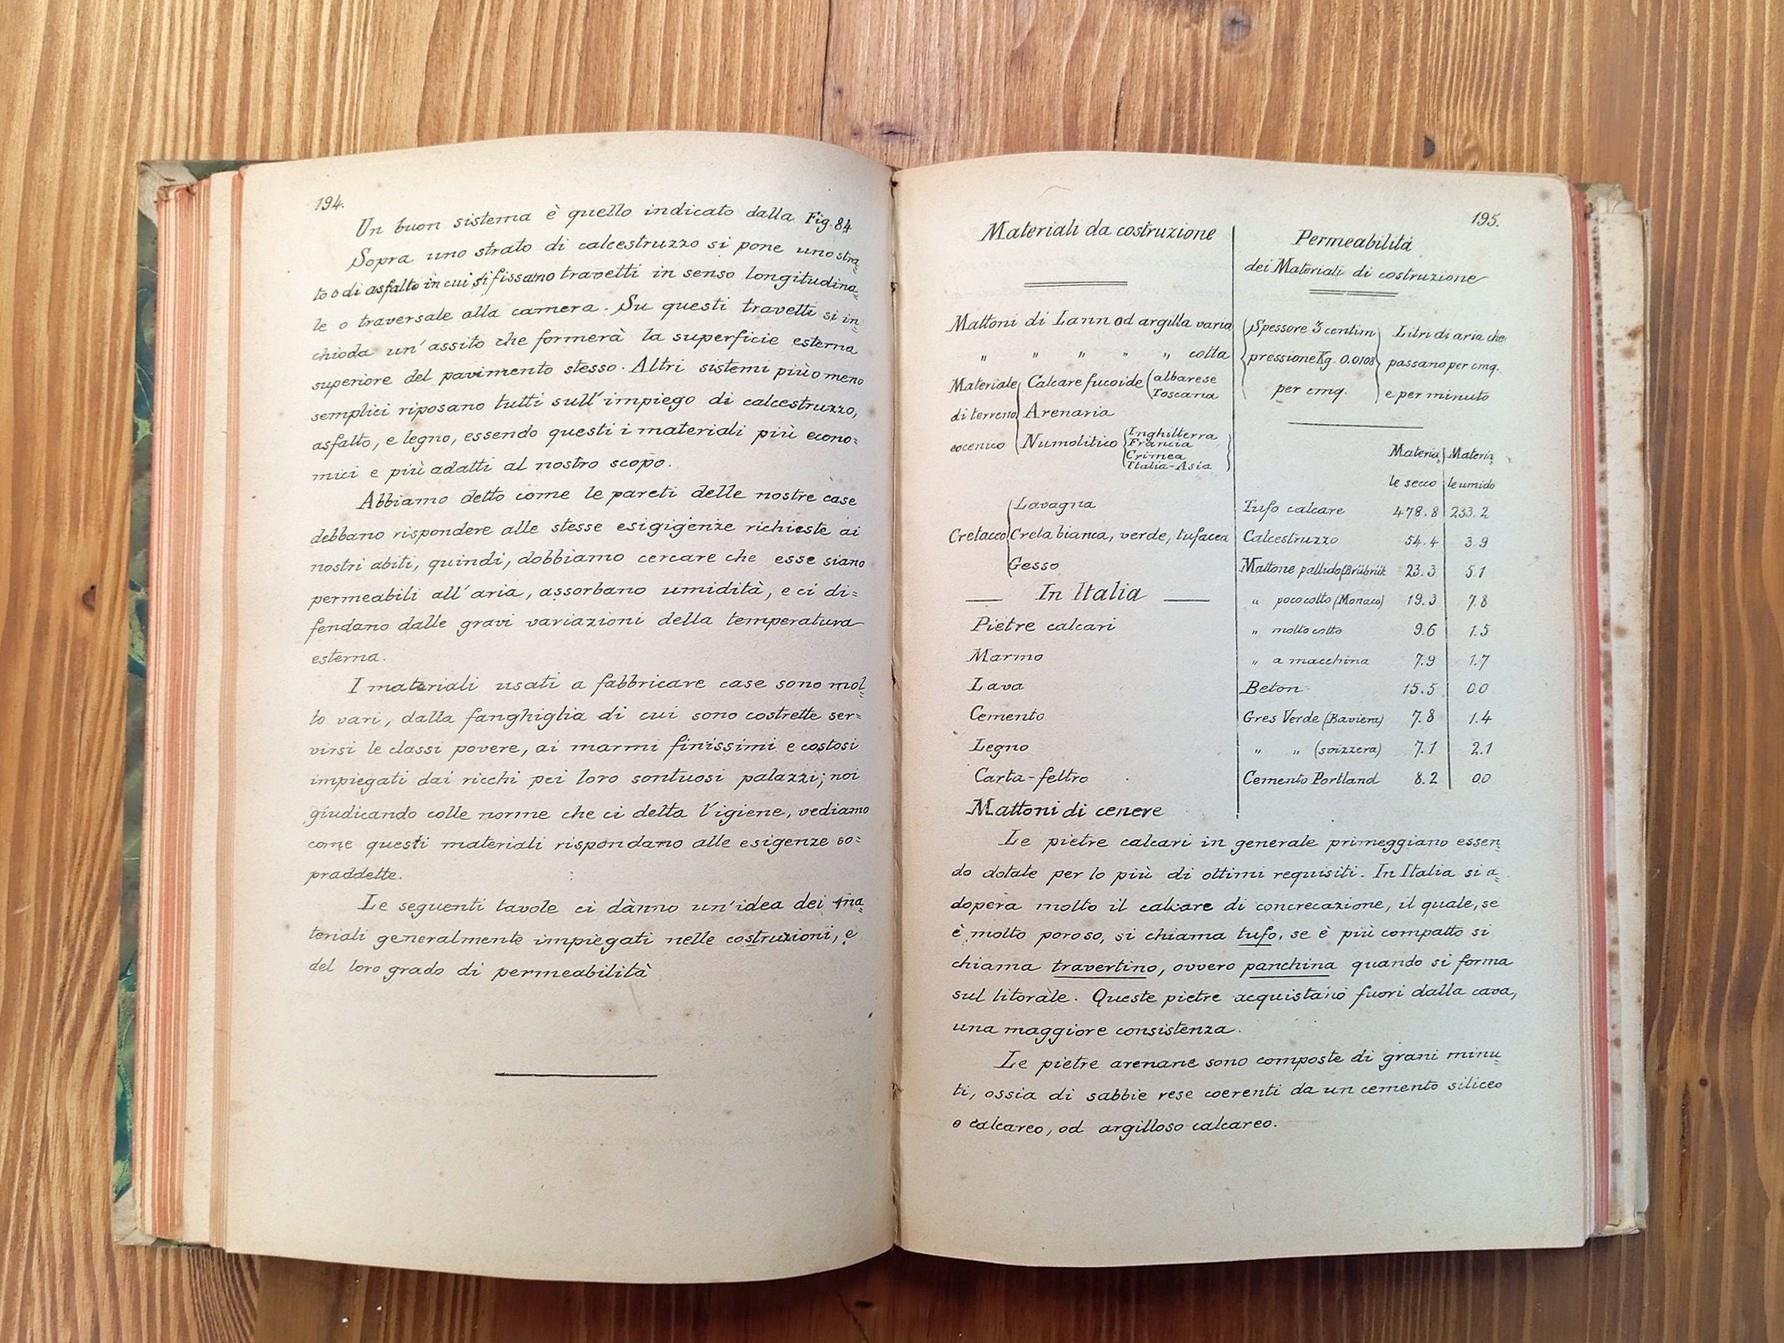 194.
Un buon sistema è quello indicato dalla Fig. 84
Sopra uno strato di calcestruzzo si pone uno stra=
to o di asfalto in cui si fissano travetti in senso longitudina=
le o traversale alla camera. Su questi travetti si in=
chioda un'assito che formerà la superficie esterna
superiore del pavimento stesso. Altri sistemi più o meno
semplici riposano tutti sull'impiego di calcestruzzo,
asfalto, e legno, essendo questi i materiali più econo=
mici e più adatti al nostro scopo.
Abbiamo detto come le pareti delle nostre case
debbano rispondere alle stesse esigigenze richieste ai
nostri abiti, quindi, dobbiamo cercare che esse siano
permeabili all'aria, assorbano umidità, e ci di=
fendano dalle gravi variazioni della temperatura
esterna.
I materiali usati a fabbricare case sono mol=
to vari, dalla fanghiglia di cui sono costrette ser=
virsi le classi povere, ai marmi finissimi e costosi
impiegati dai ricchi pei loro sontuosi palazzi; noi
giudicando colle norme che ci detta l'igiene, vediamo
come questi materiali rispondano alle esigenze so=
praddette.
Le seguenti tavole ci dànno un'idea dei ma=
teriali generalmente impiegati nelle costruzioni, e
del loro grado di permeabilità
195.
Materiali da costruzione
Mattoni di Lann od argilla varia
" " " " " cotta
Materiale di terreno eocenico
Calcare fucoide (albarese Toscana
Arenaria
Numolitico Inghilterra Francia Crimea Italia-Asia
Cretacco
Lavagna
Creta bianca, verde, tufacea
Gesso
In Italia
Pietre calcari
Marmo
Lava
Cemento
Legno
Carta-feltro
Mattoni di cenere
Permeabilità
dei Materiali di costruzione
Spessore 3 centim Litri di aria che
pressione Kg. 0.0108 passano per cmq.
per cmq. e per minuto
Materia= Materia=
le secco le umido
Tufo calcare 478.8 233.2
Calcestruzzo 54.4 3.9
Mattone pallido (Brübrük 23.3 5.1
" poco cotto (Monaco) 19.3 7.8
" molto cotto 9.6 1.5
" a macchina 7.9 1.7
Beton 15.5 00
Gres Verde (Baviera) 7.8 1.4
" " (svizzera) 7.1 2.1
Cemento Portland 8.2 00
Le pietre calcari in generale primeggiano essen=
do dotate per lo più di ottimi requisiti. In Italia si a=
dopera molto il calcare di concrecazione, il quale, se
è molto poroso, si chiama tufo, se è più compatto si
chiama travertino, ovvero panchina quando si forma
sul litorale. Queste pietre acquistano fuori dalla cava,
una maggiore consistenza.
Le pietre arenane sono composte di grani minu=
ti, ossia di sabbie rese coerenti da un cemento siliceo
o calcareo, od argilloso calcareo.